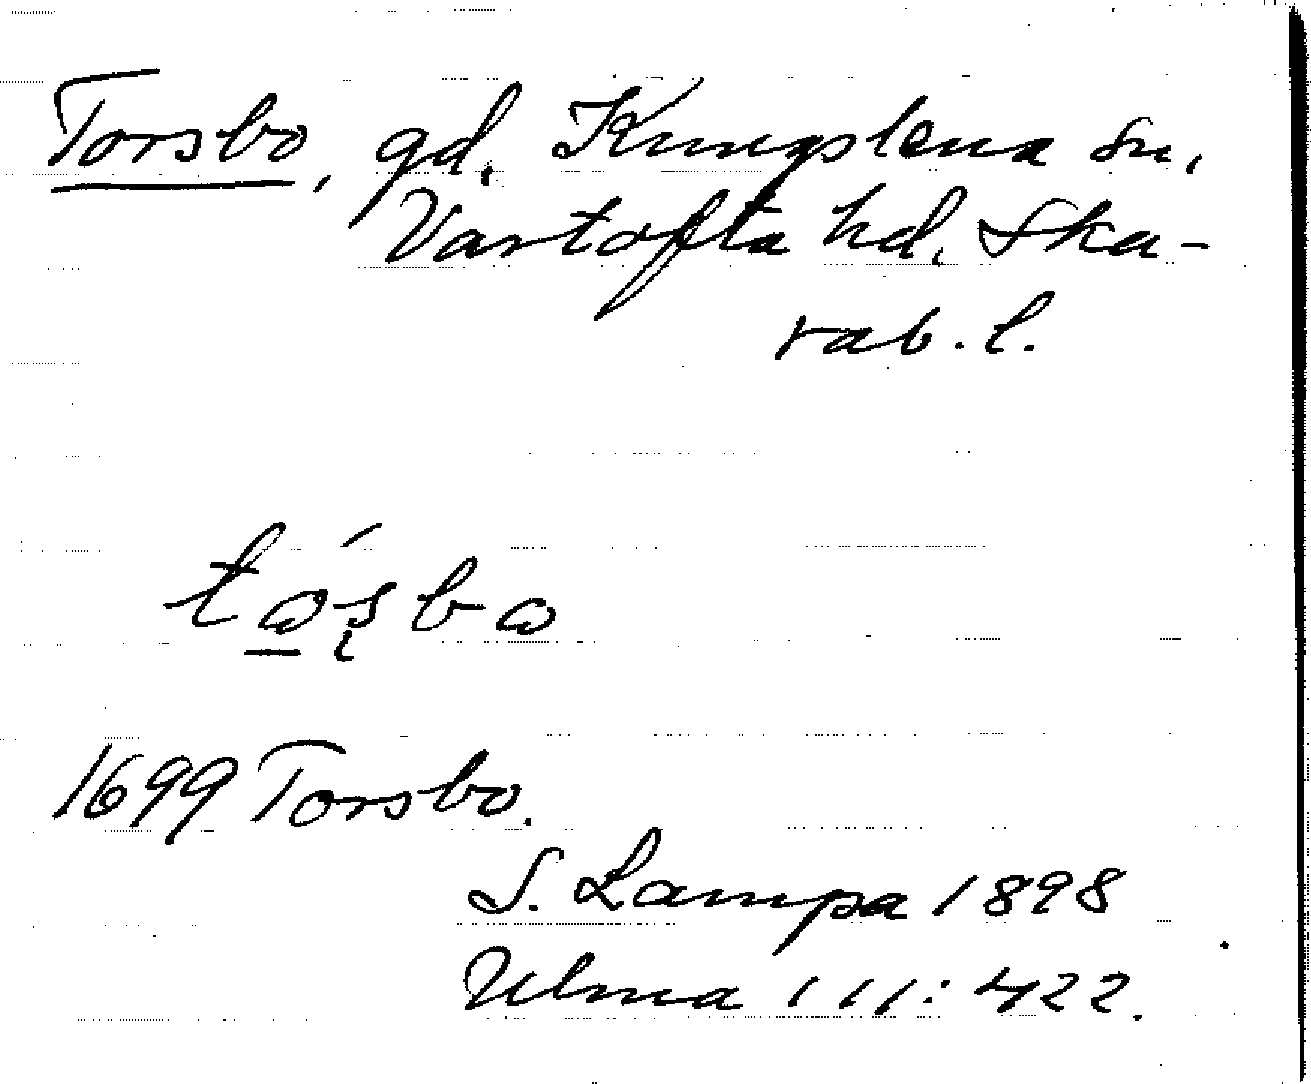 Torsbo, gd. Kungslena sn,
Vartofta hd. Ska-
rab. l.
to̲ʂ́bo
1699 Torsbo.
S. Lampa 1898
Ulma 111:422.